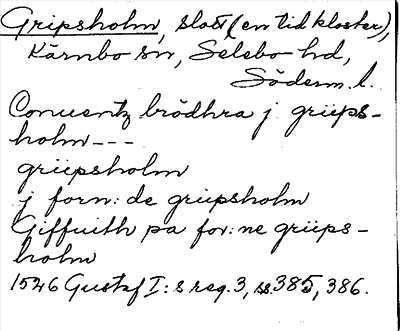 Gripsholm, slott (en tid kloster),
Kärnbo sn, Selebo hd,
Söderm. l.
Conuentz brödhra j griips-
holm ---
griipsholm
j forn: de gripsholm
Giffuith pa for: ne griips-
holm
1526 Gustaf I: s reg. 3, ss. 385, 386.